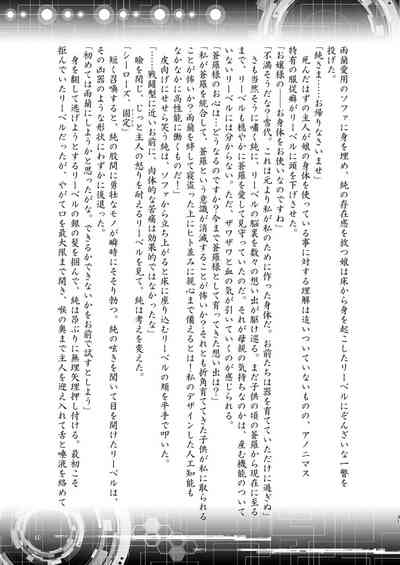 雨蘭愛用のソファに身を埋め、純の存在感を放つ娘は床から身を起こしたリーベルにぞんざいな一瞥を
投げた。
「純さま……お帰りなさいませ」
死んだはずの主人が娘の身体を使っている事に対する理解は追いついていないものの、アノニマス
特有の服従癖がリーベルに頭を下げさせた。
「お嬢様の、お体をお使いなのですね」
「不満そうだな？雪代。これは元より私が私のために作った身体だ。お前たちは器を育てていただけに過ぎぬ」
さも当然そうに嘯く純に、リーベルの脳裏を数々の想い出が駆け巡る。まだ子供の頃の蒼羅から現在に至る
まで、リーベルも穏やかに蒼羅を愛して見守っていたのだ。それが母親の気持ちなのかは、産む機能のついて
いないリーベルには分からない。ただ、ザワザワと血の気が引いていくのが感じられる。
「蒼羅様のお心は…どうなるのですか？今まで蒼羅様として育ってきた想い出は？」
「私が蒼羅を統合して、蒼羅という意識が消滅することが怖いか？それとも折角育ててきた子供が私に取られる
ことが怖いか？雨蘭を絆して寝盗った上にヒト並みに親心まで備えるとは！私のデザインした人工知能も
なかなかに高性能に働くものだ！」
皮肉げにせせら笑う純は、ソファから立ち上がると床に座り込むリーベルの頬を平手で叩いた。
「……戦闘型に近いお前に、肉体的な苦痛は効果的ではなかったな」
瞼を閉じ、じっと主人の怒りを与えられるリーベルを見て、純は考えを変えた。
「シーローズ、固定」
短く召喚すると、純の股間に勇壮なモノが瞬時にそそり勃つ。純の呟きを聞いて目を開けたリーベルは、
その凶器のような形状にわずかに後退った。
「初めては雨蘭にしようかと思ったがな。できるかできないかをお前で試すとしよう」
身を翻して逃げようとするリーベルの銀の髪を掴んで、純は昂ぶりに無理矢理押し付ける。最初こそ
拒んでいたリーベルだったが、やがて口を最大限まで開き、喉の奥まで主人を迎え入れて舌と唾液を絡めて